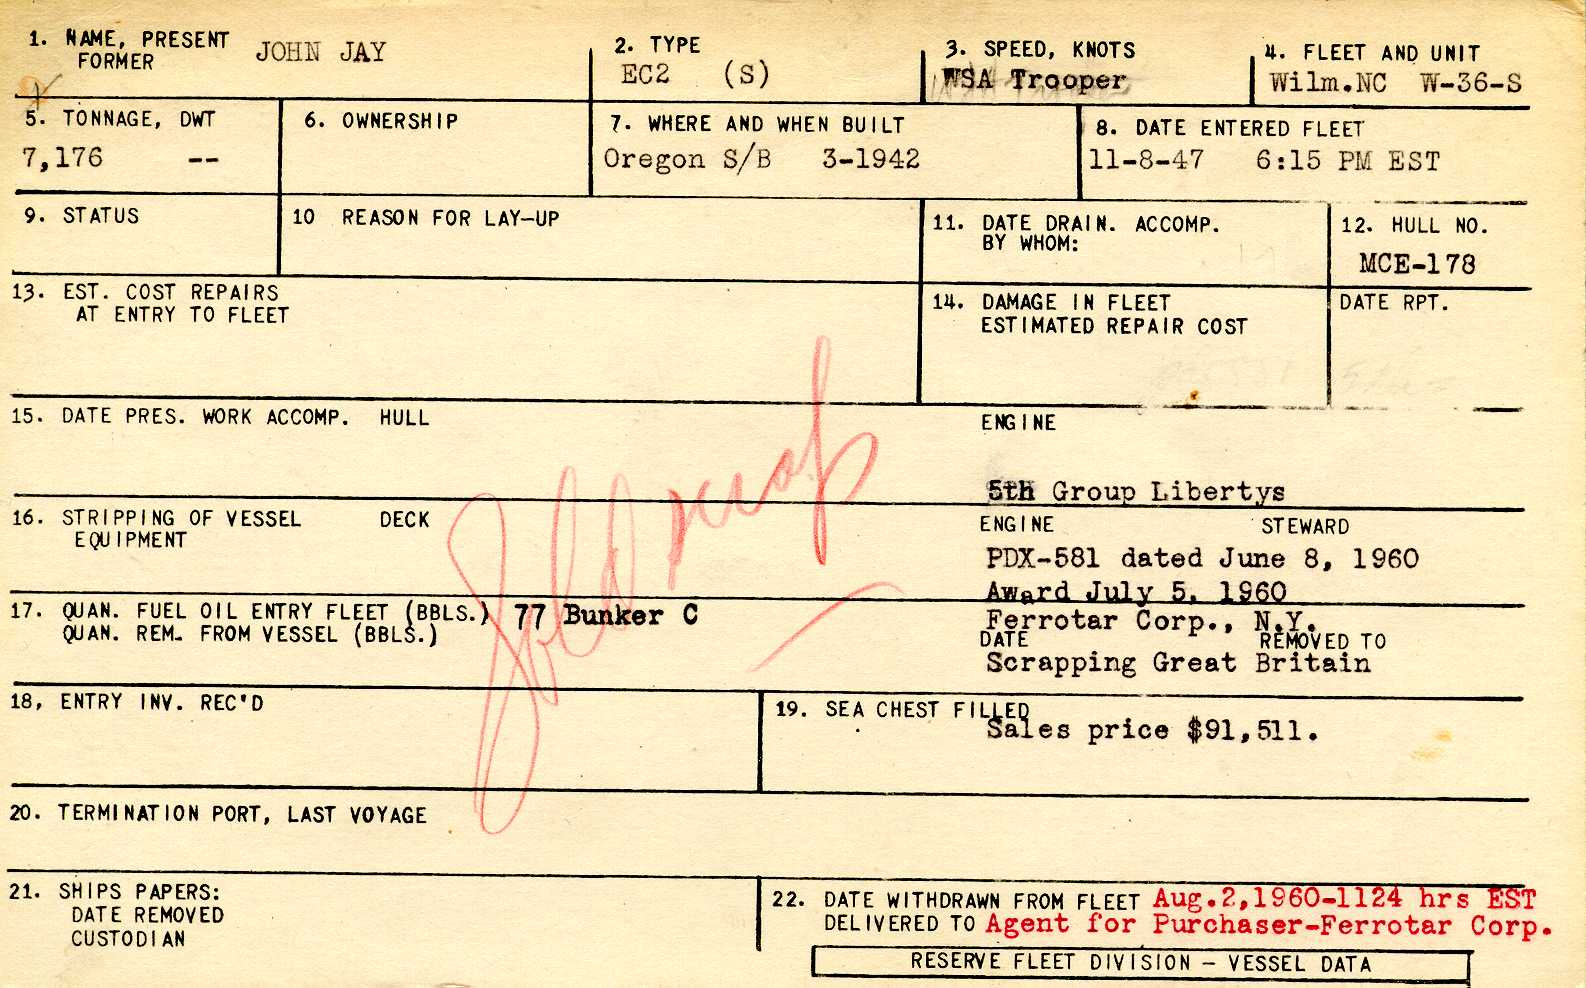 1. NAME, PRESENT JOHN JAY
FORMER
2. TYPE
EC2 (S)
3. SPEED, KNOTS
WSA Trooper
4. FLEET AND UNIT
Wilm.NC W-36-S
5. TONNAGE, DWT
7,176 --
6. OWNERSHIP
7. WHERE AND WHEN BUILT
Oregon S/B 3-1942
8. DATE ENTERED FLEET
11-8-47 6:15 PM EST
9. STATUS
10 REASON FOR LAY-UP
11. DATE DRAIN. ACCOMP.
BY WHOM:
12. HULL NO.
MCE-178
13. EST. COST REPAIRS
AT ENTRY TO FLEET
14. DAMAGE IN FLEET
ESTIMATED REPAIR COST
DATE RPT.
15. DATE PRES. WORK ACCOMP. HULL ENGINE
5th Group Libertys
16. STRIPPING OF VESSEL DECK ENGINE STEWARD
EQUIPMENT
PDX-581 dated June 8, 1960
Award July 5, 1960
17. QUAN. FUEL OIL ENTRY FLEET (BBLS.) 77 Bunker C
Ferrotar Corp., N.Y.
QUAN. REM. FROM VESSEL (BBLS.) DATE REMOVED TO
Scrapping Great Britain
Sold scrap
18, ENTRY INV. REC'D
19. SEA CHEST FILLED
Sales price $91,511.
20. TERMINATION PORT, LAST VOYAGE
21. SHIPS PAPERS:
DATE REMOVED
CUSTODIAN
22. DATE WITHDRAWN FROM FLEET Aug.2,1960-1124 hrs EST
DELIVERED TO Agent for Purchaser-Ferrotar Corp.
RESERVE FLEET DIVISION – VESSEL DATA